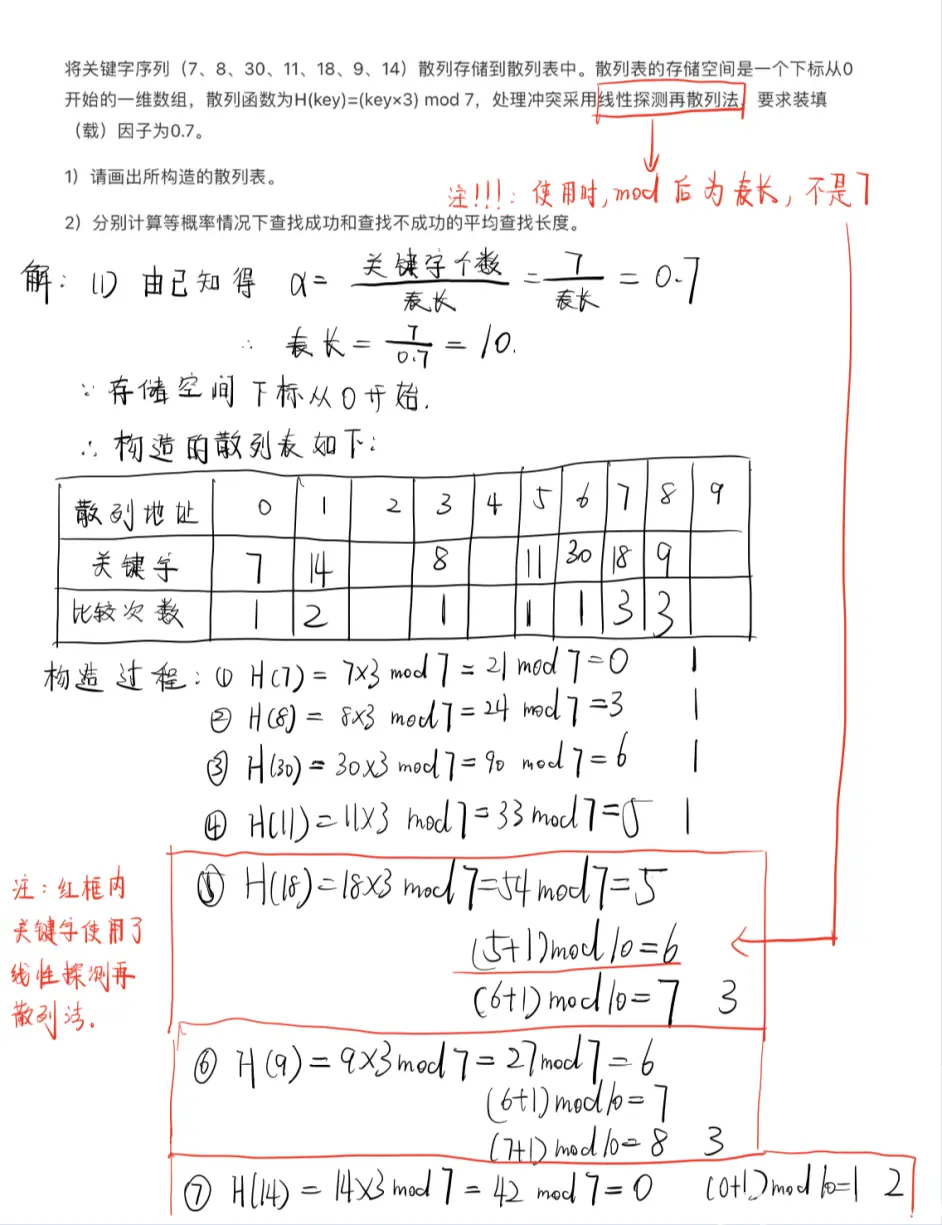 将关键字序列（7、8、30、11、18、9、14）散列存储到散列表中。散列表的存储空间是一个下标从0
开始的一维数组，散列函数为H(key)=(key×3) mod 7，处理冲突采用线性探测再散列法，要求装填
（载）因子为0.7。
1）请画出所构造的散列表。
注!!!：使用时,mod后为表长，不是7
2）分别计算等概率情况下查找成功和查找不成功的平均查找长度。
解：(1) 由已知得 α= 关键字个数/表长 = 7/表长 = 0.7
∴ 表长 = 7/0.7 = 10.
∵存储空间下标从0开始.
∴构造的散列表如下：
散列地址 0 1 2 3 4 5 6 7 8 9
关键字 7 14 8 11 30 18 9
比较次数 1 2 1 1 1 3 3
构造过程：① H(7) = 7×3 mod 7 = 21 mod 7 = 0 1
② H(8) = 8×3 mod 7 = 24 mod 7 = 3 1
③ H(30) = 30×3 mod 7 = 90 mod 7 = 6 1
④ H(11) = 11×3 mod 7 = 33 mod 7 = 5 1
⑤ H(18) = 18×3 mod 7 = 54 mod 7 = 5
(5+1) mod 10 = 6
(6+1) mod 10 = 7 3
注：红框内
关键字使用了
线性探测再
散列法.
⑥ H(9) = 9×3 mod 7 = 27 mod 7 = 6
(6+1) mod 10 = 7
(7+1) mod 10 = 8 3
⑦ H(14) = 14×3 mod 7 = 42 mod 7 = 0 (0+1) mod 10 = 1 2